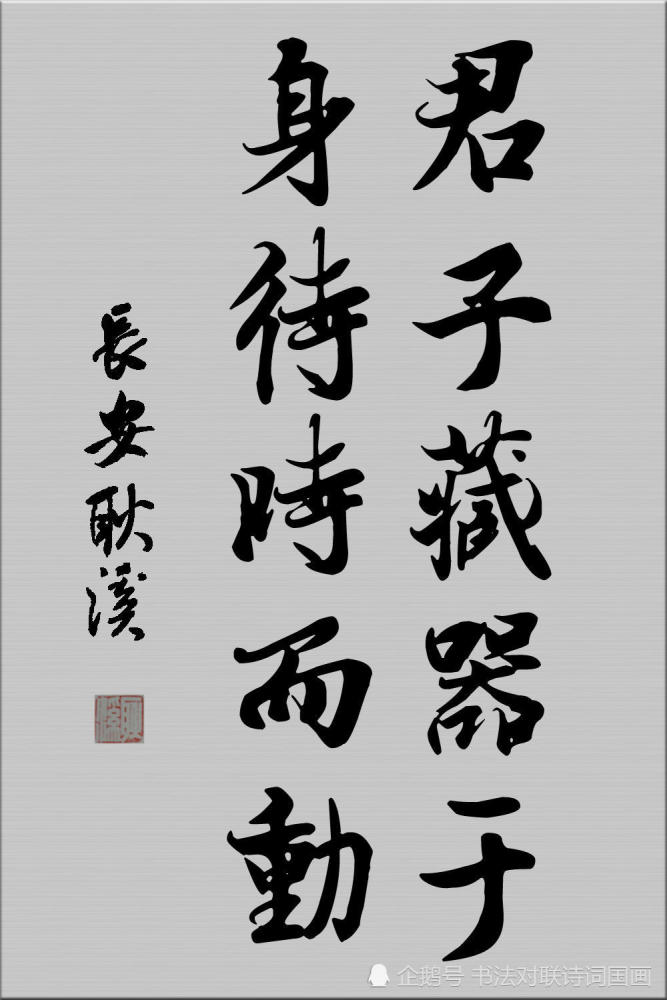 君子藏器于
身待時而動
長安耿溪
企鹅号 书法对联诗词国画